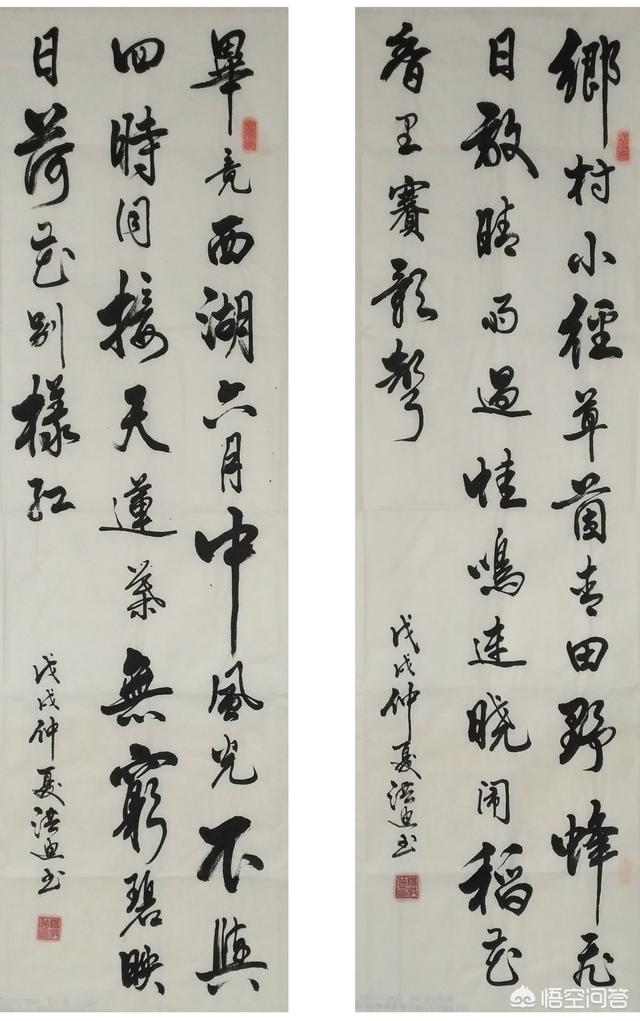 鄉村小徑草茵青田野蜂飛
日晴雨過蛙鳴連曉闹稻花
香里賽歌聲
戊戌仲夏洪迪书
畢竟西湖六月中風光不與
四時同接天蓮葉無窮碧映
日荷花別樣紅
戊戌仲夏洪迪书
悟空问答